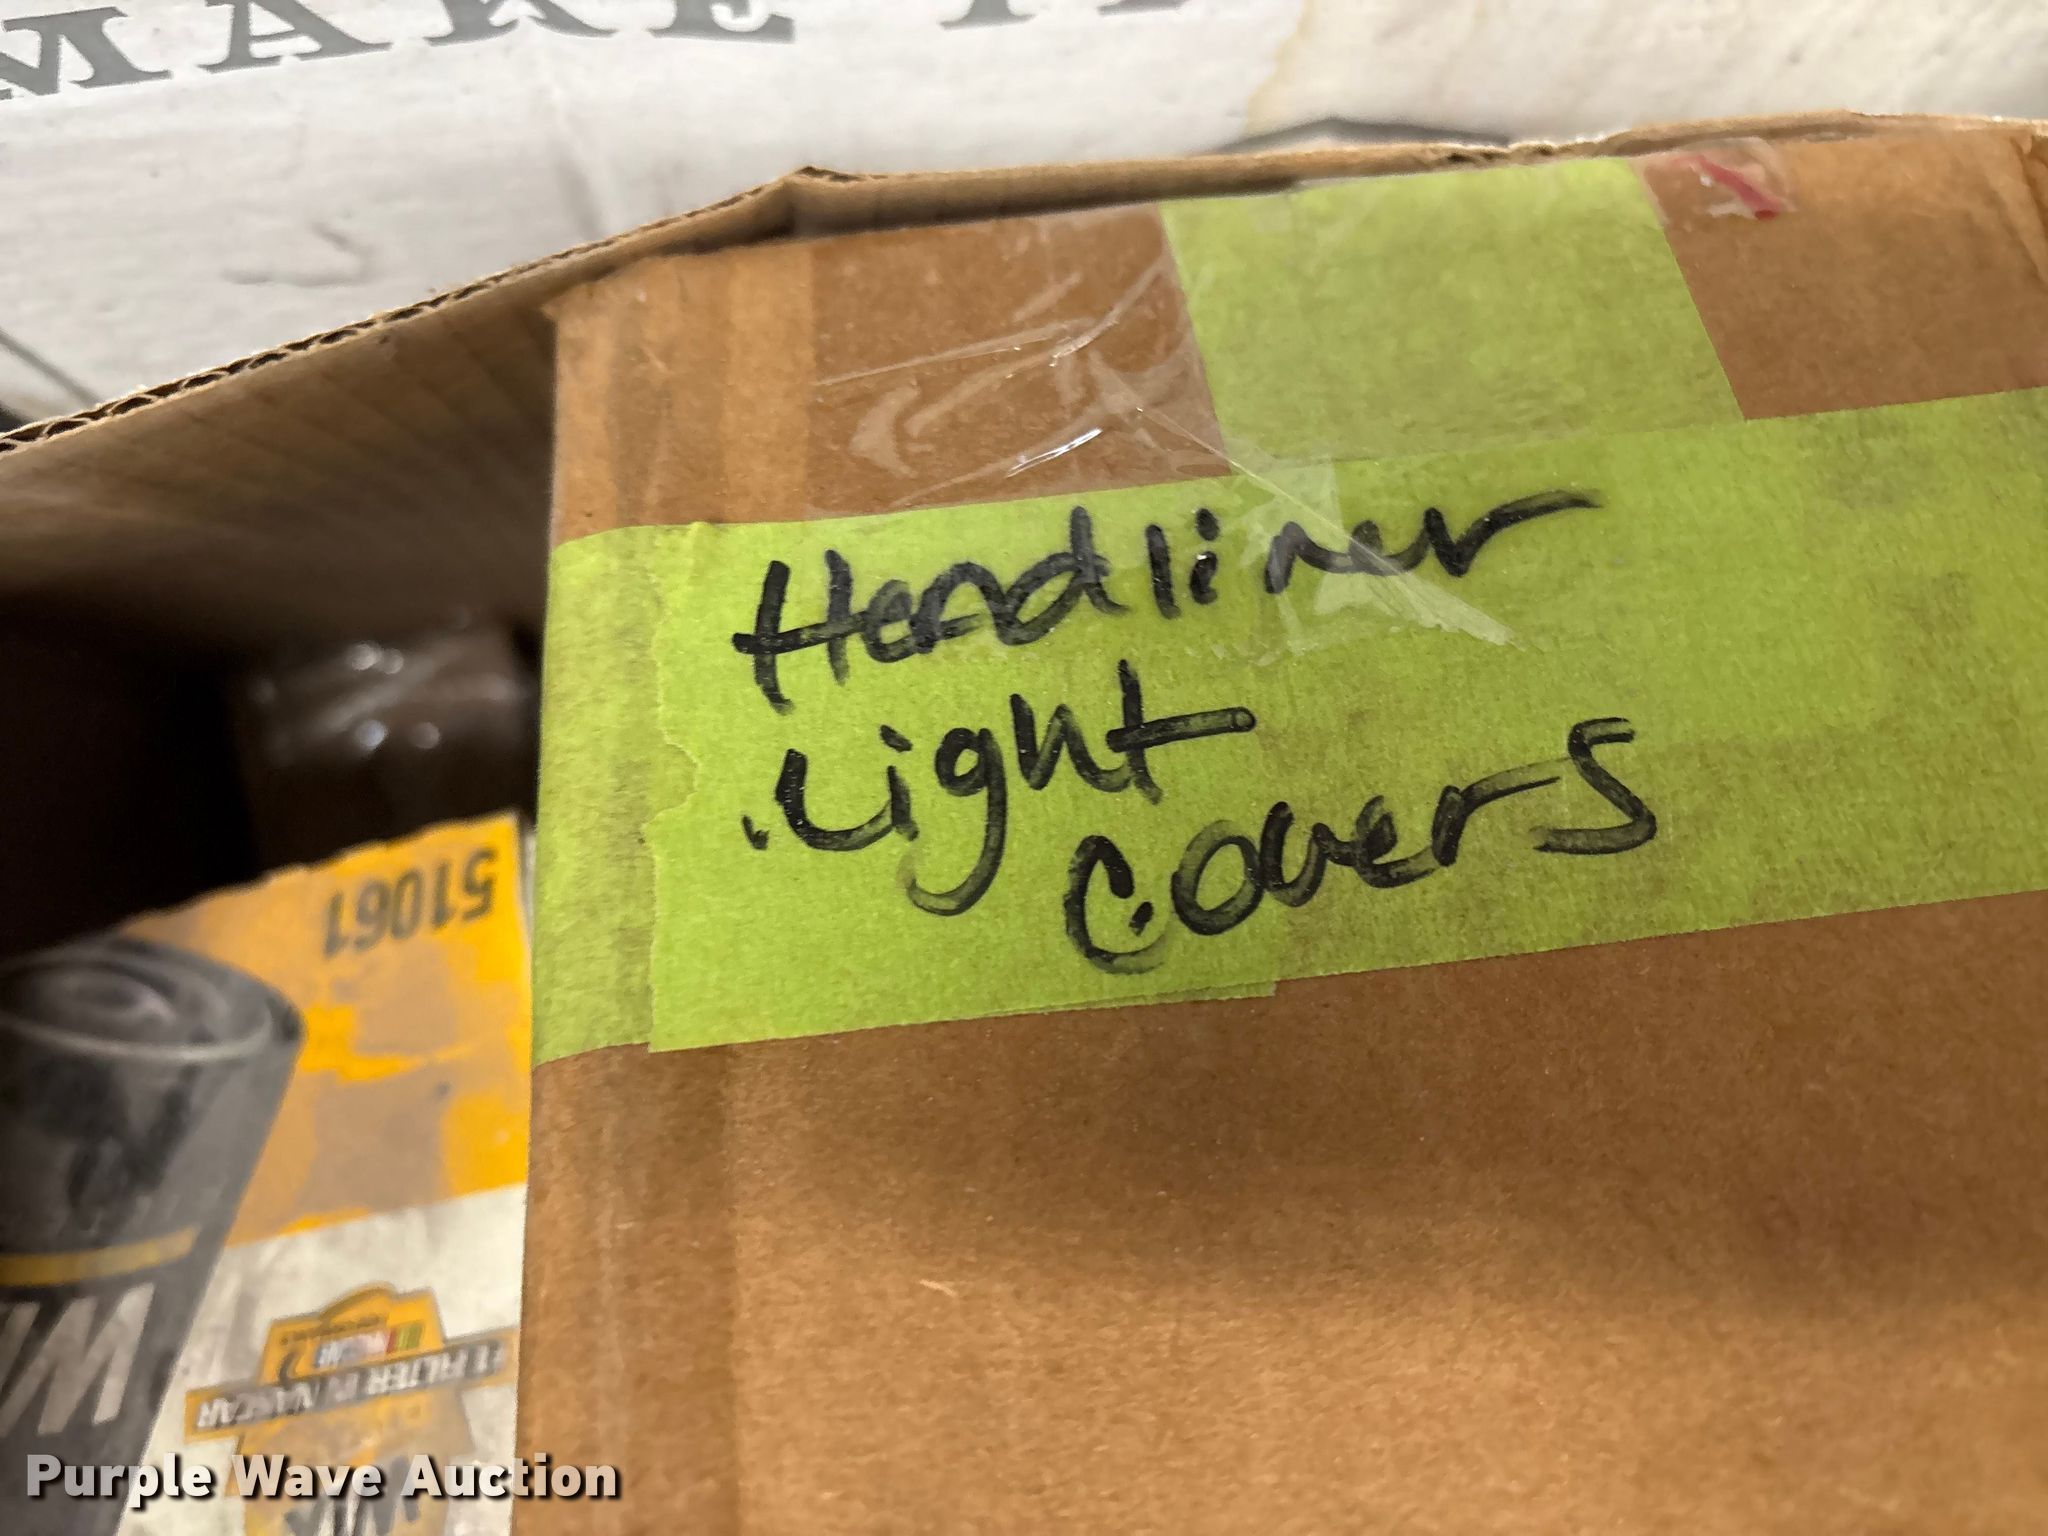 MAKE
Headliner
Light
Covers
51061
#1 FILTER IN NASCAR
WIX
Purple Wave Auction